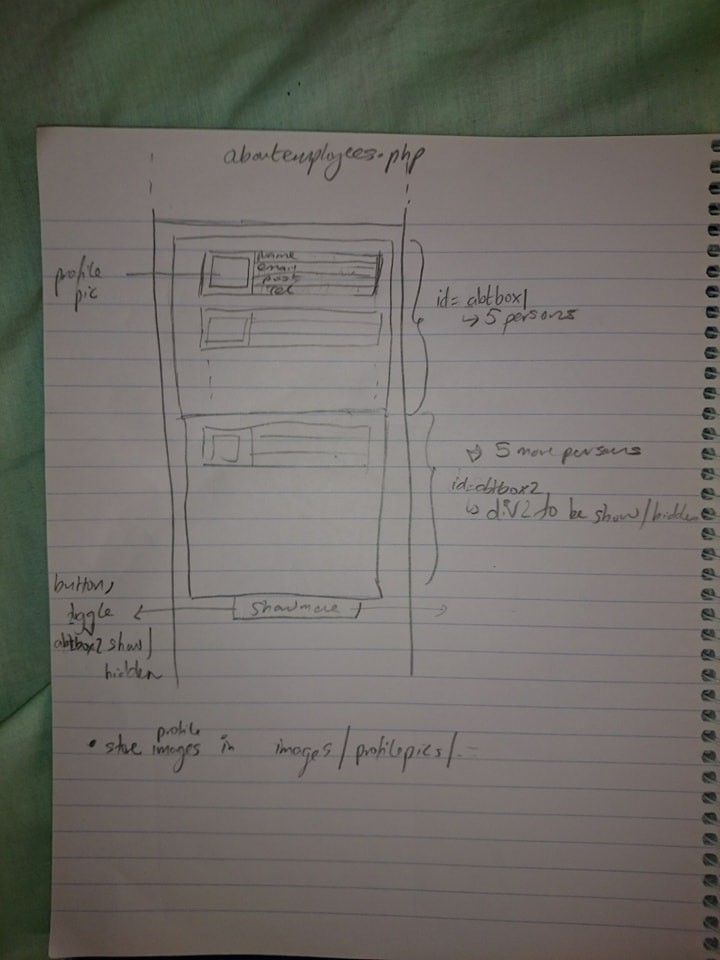 aboutemployees.php
profile
pic
name
email
post
tel
id= abtbox1
↳ 5 persons
↳ 5 more persons
id=abtbox2
↳ div2 to be show/hidden
button,
toggle
abtbox2 show/
hidden
Showmore
• store profile images in images/profilepics/...